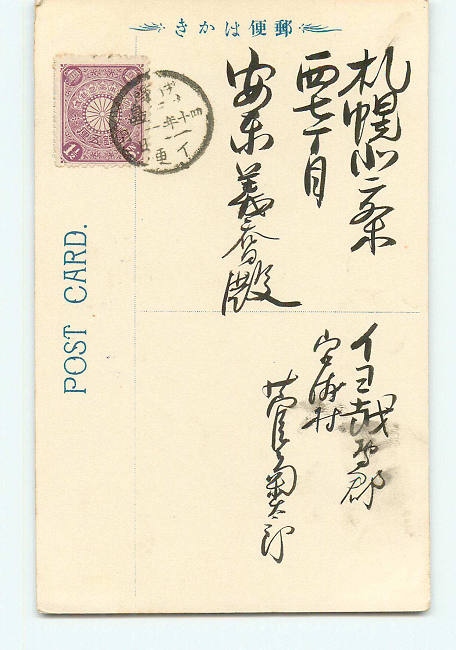 郵便はかき
札幌北二条
西七丁目
安東義喬殿
イヨ越智郡
宮浦村
菅菊太郎
POST CARD.
1½